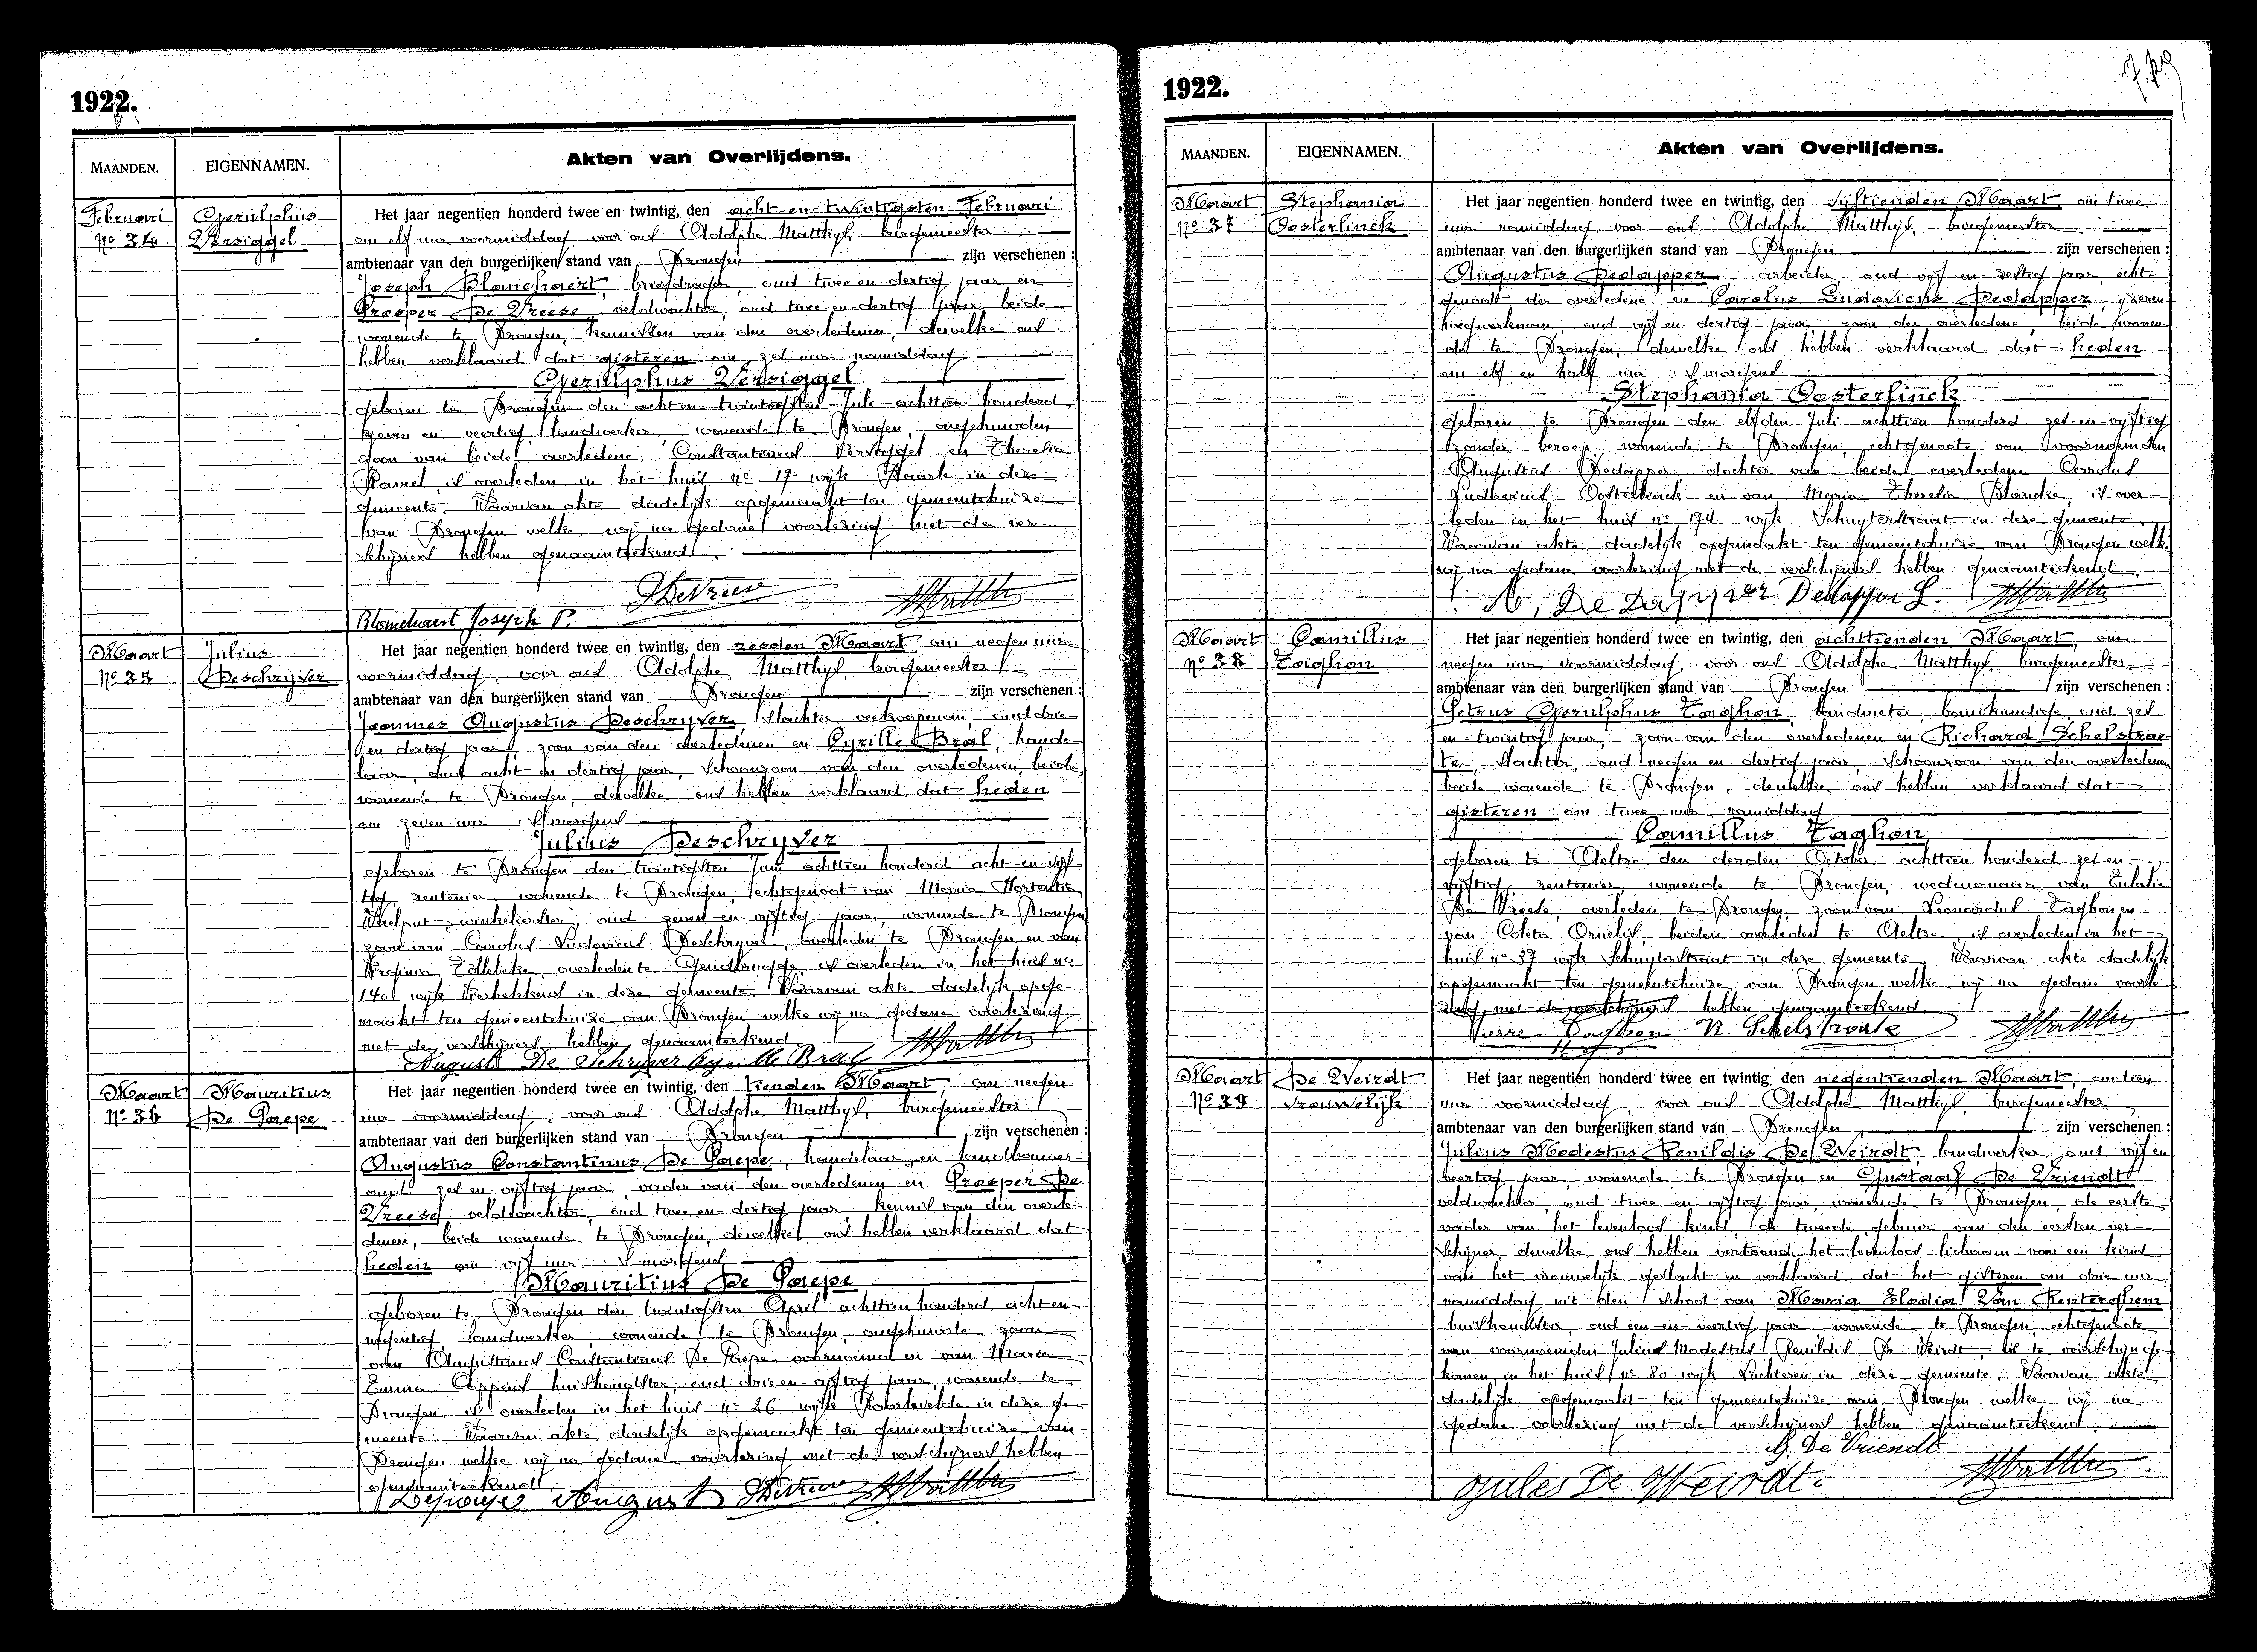 1922.
MAANDEN.
EIGENNAMEN.
Akten van Overlijdens.
Februari
No 34
Gerulphus
Versiggel
Het jaar negentien honderd twee en twintig, den acht-en-twintigsten Februari
om elf uur voormiddag, voor ons Adolphe Matthys, burgemeester
ambtenaar van den burgerlijken stand van Drongen zijn verschenen :
Joseph Blanchaert, briefdrager, oud twee en dertig jaar en
Prosper De Vreese, veldwachter, oud twee-en-dertig jaar, beide
wonende te Drongen, kennissen van den overledenen, dewelke ons
hebben verklaard dat gisteren om zes uur namiddag
Gerulphus Versiggel
geboren te Drongen den acht en twintigsten Juli achttien honderd
zeven en veertig, landwerker, wonende te Drongen, ongehuwden
zoon van beide overledene Constantinus Versiggel en Theresia
is overleden in het huis no 17 wijk Baarle in deze
gemeente. Waarvan akte dadelijk opgemaakt ten gemeentehuize
van Drongen welke wij na gedane voorlezing met de ver-
schijners hebben genaamteekend.
Blanchaert Joseph P. DeVreese AMatthys
Maart
No 35
Julius
Deschryver
Het jaar negentien honderd twee en twintig, den zesden Maart om negen uur
voormiddag, voor ons Adolphe Matthys, burgemeester
ambtenaar van den burgerlijken stand van Drongen zijn verschenen :
Joannes Augustus Deschryver, slachter veekoopman, oud drie
en dertig jaar, zoon van den overledenen en Cyrille Bral, hande-
laar, oud acht en dertig jaar, schoonzoon van den overledenen, beide
wonende te Drongen, dewelke ons hebben verklaard dat heden
om zeven uur 's morgens
Julius Deschryver
geboren te Drongen den twintigsten Juni achttien honderd acht-en-vijf-
tig, rentenier, wonende te Drongen, echtgenoot van Maria Hortentia
Waelput, winkelierster, oud zeven-en-vijftig jaar, wonende te Drongen
zoon van Carolus Ludovicus Deschryver, overleden te Drongen en van
Virginia Tollebeke, overleden te Gendbrugge, is overleden in het huis no
140 wijk in deze gemeente. Waarvan akte dadelijk opge-
maakt ten gemeentehuize van Drongen welke wij na gedane voorlezing
met de verschijners hebben genaamteekend.
August De Schryver Cyrille Bral AMatthys
Maart
No 36
Mauritius
De Paepe
Het jaar negentien honderd twee en twintig, den tienden Maart, om negen
uur voormiddag, voor ons Adolphe Matthys, burgemeester
ambtenaar van den burgerlijken stand van Drongen zijn verschenen :
Augustus Constantinus De Paepe, handelaar en landbouwer
oud zes en vijftig jaar, vader van den overledenen en Prosper De
Vreese, veldwachter, oud twee en dertig jaar, kennis van den overle-
denen, beide wonende te Drongen, dewelke ons hebben verklaard dat
heden om vijf uur 's morgens
Mauritius De Paepe
geboren te Drongen den twintigsten April achttien honderd acht en
negentig, landwerker, wonende te Drongen, ongehuwde zoon
van Augustinus Constantinus De Paepe voornoemd en van Maria
Emma Coppens huishoudster, oud drie en vijftig jaar, wonende te
Drongen, is overleden in het huis no 26 wijk Baarlevelde in deze ge-
meente. Waarvan akte dadelijk opgemaakt ten gemeentehuize van
Drongen welke wij na gedane voorlezing met de verschijners hebben
genaamteekend.
Depaepe August DeVreese AMatthys
1922.
MAANDEN.
EIGENNAMEN.
Akten van Overlijdens.
Maart
No 37
Stephania
Oosterlinck
Het jaar negentien honderd twee en twintig, den vijftienden Maart, om twee
uur namiddag, voor ons Adolphe Matthys, burgemeester
ambtenaar van den burgerlijken stand van Drongen zijn verschenen :
Augustus Dedapper, arbeider, oud vijf en zestig jaar, echt-
genoot der overledene en Carolus Ludovicus Dedapper, yzeren-
wegwerkman, oud vijf en dertig jaar, zoon der overledene, beide wonen-
de te Drongen, dewelke ons hebben verklaard dat heden
om elf en half uur 's morgens
Stephania Oosterlinck
geboren te Drongen den elfden Juli achttien honderd zes-en-vijftig
zonder beroep, wonende te Drongen, echtgenoote van voornoemden
Augustus Dedapper, dochter van beide overledene Carolus
Ludovicus Oosterlinck en van Maria Theresia Blancke, is over-
leden in het huis no 174 wijk Schuyterstraat in deze gemeente.
Waarvan akte dadelijk opgemaakt ten gemeentehuize van Drongen welke
wij na gedane voorlezing met de verschijners hebben genaamteekend.
A, De Dapper Dedapper L. AMatthys
Maart
No 38
Camillus
Taghon
Het jaar negentien honderd twee en twintig, den achttienden Maart, om
negen uur voormiddag, voor ons Adolphe Matthys, burgemeester
ambtenaar van den burgerlijken stand van Drongen zijn verschenen :
Petrus Gerulphus Taghon, landmeter, bouwkundige, oud zes
en twintig jaar, zoon van den overledenen en Richard Schelstrae-
te, slachter, oud negen en dertig jaar, schoonzoon van den overledenen
beide wonende te Drongen, dewelke ons hebben verklaard dat
gisteren om twee uur namiddag
Camillus Taghon
geboren te Aeltre den derden October achttien honderd zes en
vijftig, rentenier, wonende te Drongen, weduwnaar van Eulalie
De Vreese, overleden te Drongen, zoon van Leonardus Taghon en
van Coleta Ornelis, beiden overleden te Aeltre, is overleden in het
huis no 37 wijk Schuyterstraat in deze gemeente. Waarvan akte dadelijk
opgemaakt ten gemeentehuize van Drongen welke wij na gedane voorle-
zing met de verschijners hebben genaamteekend.
Pierre Taghon R. Schelstraete AMatthys
Maart
No 39
De Weirdt
vrouwelijk
Het jaar negentien honderd twee en twintig, den negentienden Maart, om tien
uur voormiddag, voor ons Adolphe Matthys, burgemeester
ambtenaar van den burgerlijken stand van Drongen zijn verschenen :
Julius Modestus Renildis De Weirdt, landwerker, oud vijf en
veertig jaar, wonende te Drongen en Gustaaf De Vriendt
veldwachter, oud twee en vijftig jaar, wonende te Drongen, de eerste
vader van het levenloos kind, de tweede gebuur van den eersten ver-
schijner, dewelke ons hebben vertoond het levenloos lichaam van een kind
van het vrouwelijk geslacht en verklaard dat het gisteren om drie uur
namiddag uit den schoot van Maria Elodia Van Renterghem
huishoudster, oud een-en-veertig jaar, wonende te Drongen, echtgenoote
van voornoemden Julius Modestus Renildis De Weirdt, is te voorschijn ge-
komen, in het huis no 80 wijk Luchteren in deze gemeente. Waarvan akte
dadelijk opgemaakt ten gemeentehuize van Drongen welke wij na
gedane voorlezing met de verschijners hebben genaamteekend.
G. De Vriendt
Jules De Weirdt. AMatthys